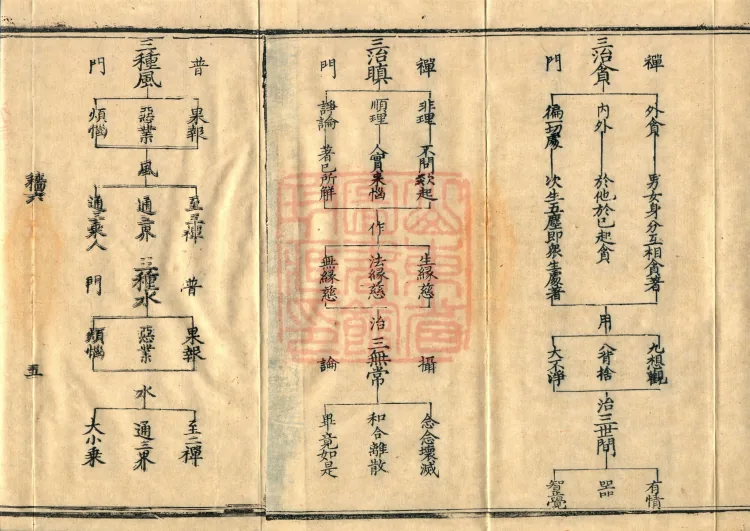 禪門
三治貪
外貪 男女身分互相貪著
內外 於他於己起貪
徧一切處 次生五塵即眾生處著
用
九想觀
八背捨
大不淨
治三世間
有情
器
智覺
禪門
三治瞋
非理 不問欻起
順理 會來惱
諍論 著已所解
作
生緣慈
法緣慈
無緣慈
治三無常
攝論
念念壞滅
和合離散
畢竟如是
普門
三種風
果報
惡業
煩惱
風
至三禪
通三界
通三乘人
普門
三種水
果報
惡業
煩惱
水
至二禪
通三界
大小乘
五